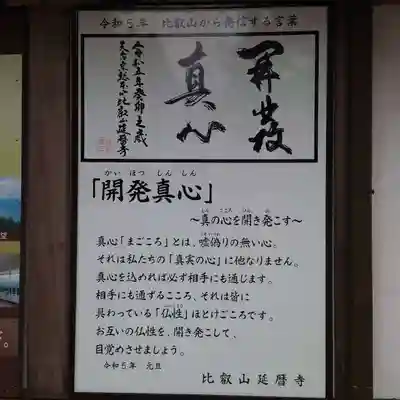 令和5年 比叡山から発信する言葉
開發
真心
令和五年癸卯之歳
天台宗総本山比叡山延暦寺
かいほつしんしん
「開発真心」
しん こころ ひら お
〜真の心を開き発こす〜
真心「まごころ」とは、嘘偽りの無い心。
それは私たちの「真実の心」に他なりません。
真心を込めれば必ず相手にも通じます。
相手にも通ずるこころ、それは皆に
具わっている「仏性」ほとけごころです。
お互いの仏性を、開き発こして、
目覚めさせましょう。
令和5年 元旦
比叡山延暦寺
望
。